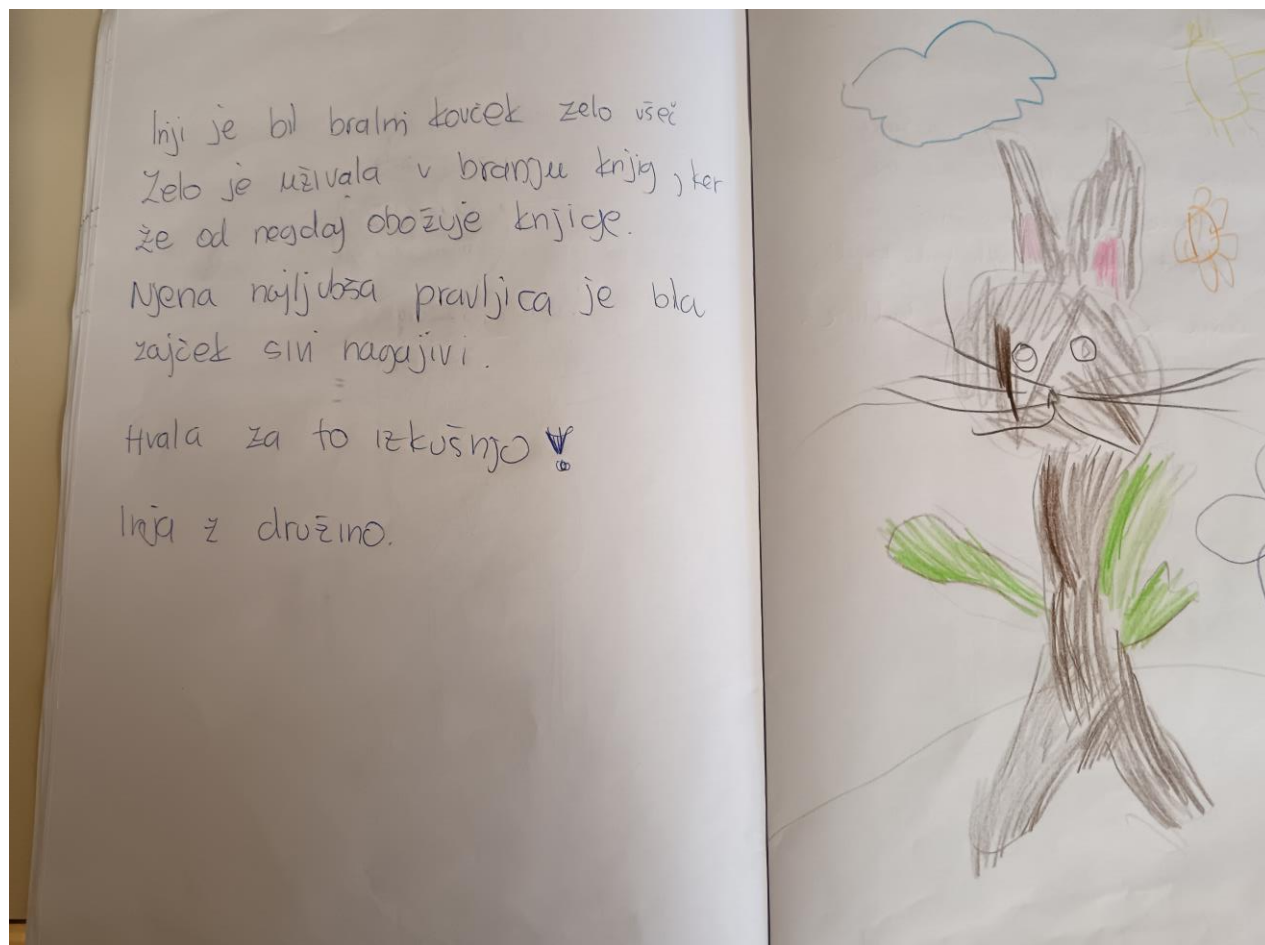 Inji je bil bralni kovček zelo všeč
Zelo je uživala v branju knjig, ker
že od negdaj obožuje knjige.
Njena najljubša pravljica je bla
zajček sivi nagajivi.
Hvala za to izkušnjo!
Inja z družino.